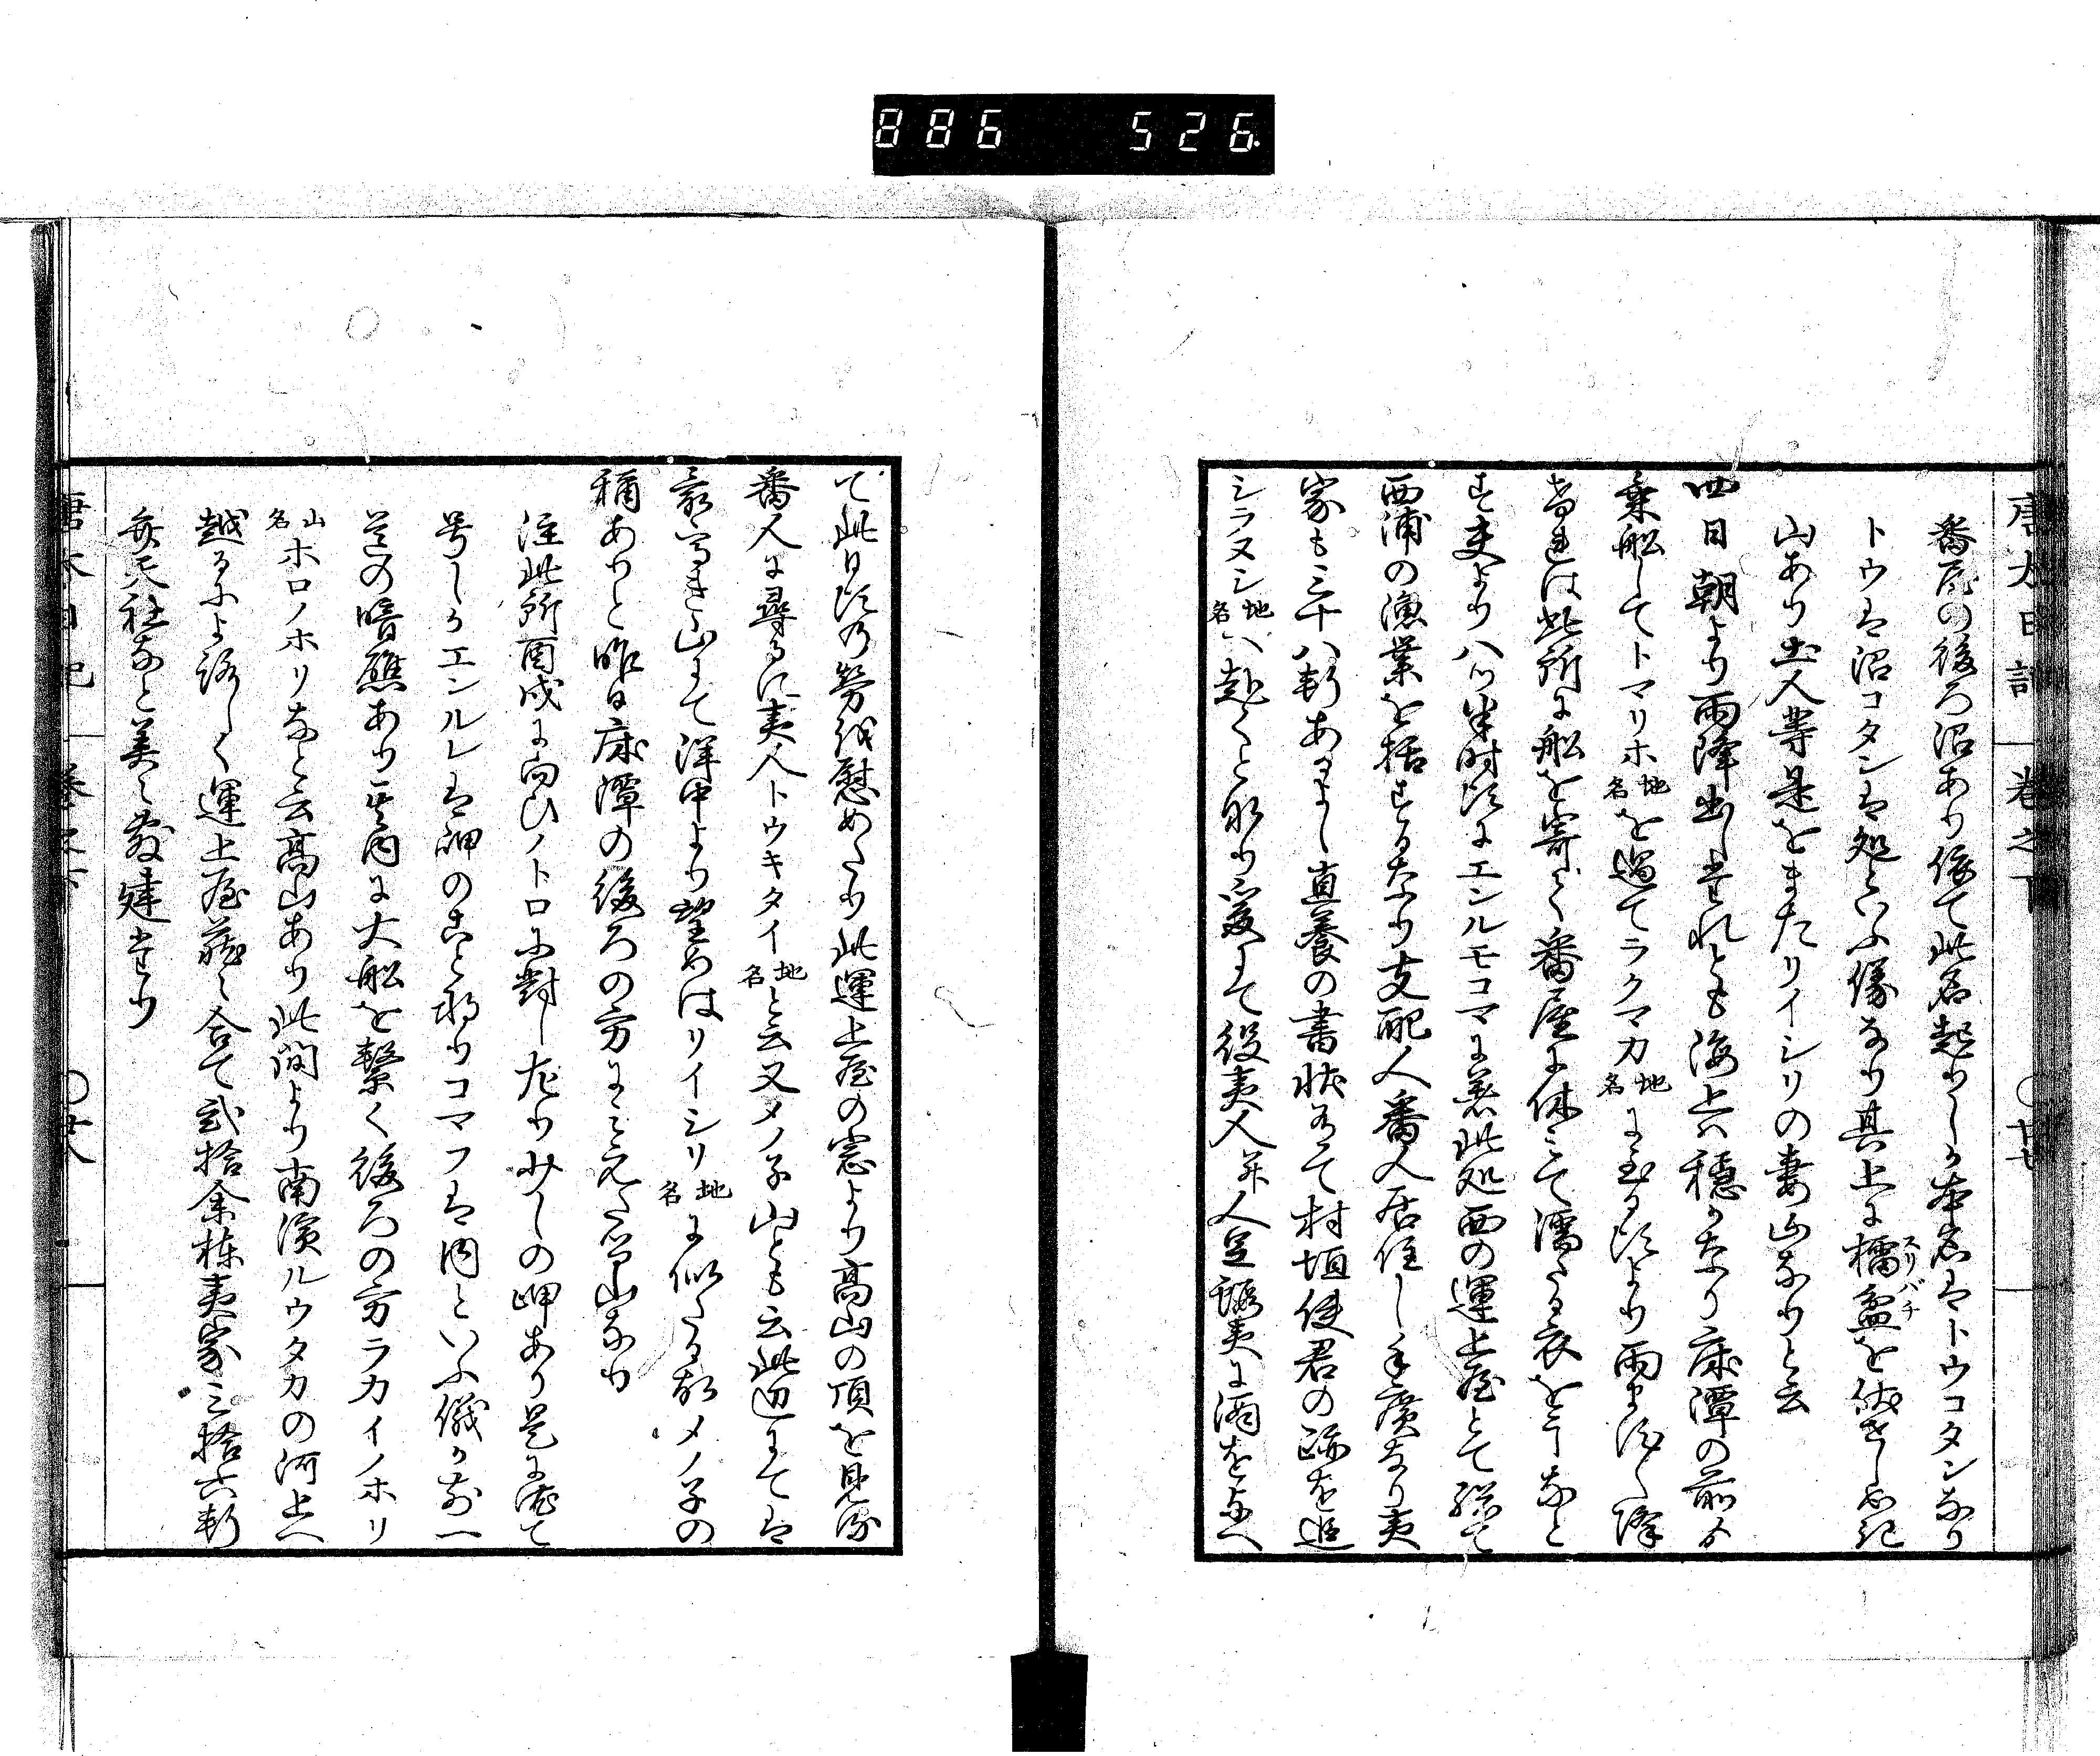 886 526
唐太日記 卷之下 〇廿七
番屋の後ろ沼あり依て此名起りしか本名はトウコタンなり
トウは沼コタンは処といふ縁なり其上に擂盆を伏せし如き
スリバチ
山あり土人等是をまたリイシリの妻山なりと云
四日朝より雨降出しけれとも海上は穏かなり 潭の前より
乗船してトマリホ地名を過てラクマカ地名に至る頃より雨は強く降
ければ此所に船を寄せて番屋に休みて濡たる衣を干なと
す夫より八ツ半時頃にエンルモコマに着此処西の運上屋とて総て
西浦の漁業を括するなり支配人番人居住し手廣なり夷
家も三十八軒あるよし直養の書状有て村垣使君の跡を追
シラヌシ地名へ赴くと也爰にて役夷人并人足蝦夷に酒を与へ
て此日頃の労を慰めたり此運上屋の窓より高山の頂を見る
番人に尋るに夷人トウキタイ地名と云又メノ子山とも云此辺にては
最高き山にて洋中より望めはリイシリ地名に似たる故メノ子の
稱ありと昨日 潭の後ろの方にみえたる山なり
注此所酉戌に向ひノトロに對し左り少しの岬あり是に依て
号しかエンルレは岬のこと也コマフは内といふ儀か前一
道の暗礁あり其内に大船を繋く後ろの方ラカイノホリ
山名ホロノホリなと云高山あり此間より南濱ルウタカの河上へ
越るによろしく運上屋蔵々合て弐拾余棟夷家三拾六軒
弁天社なと美々敷建たり
唐太日記 卷之下 〇廿八